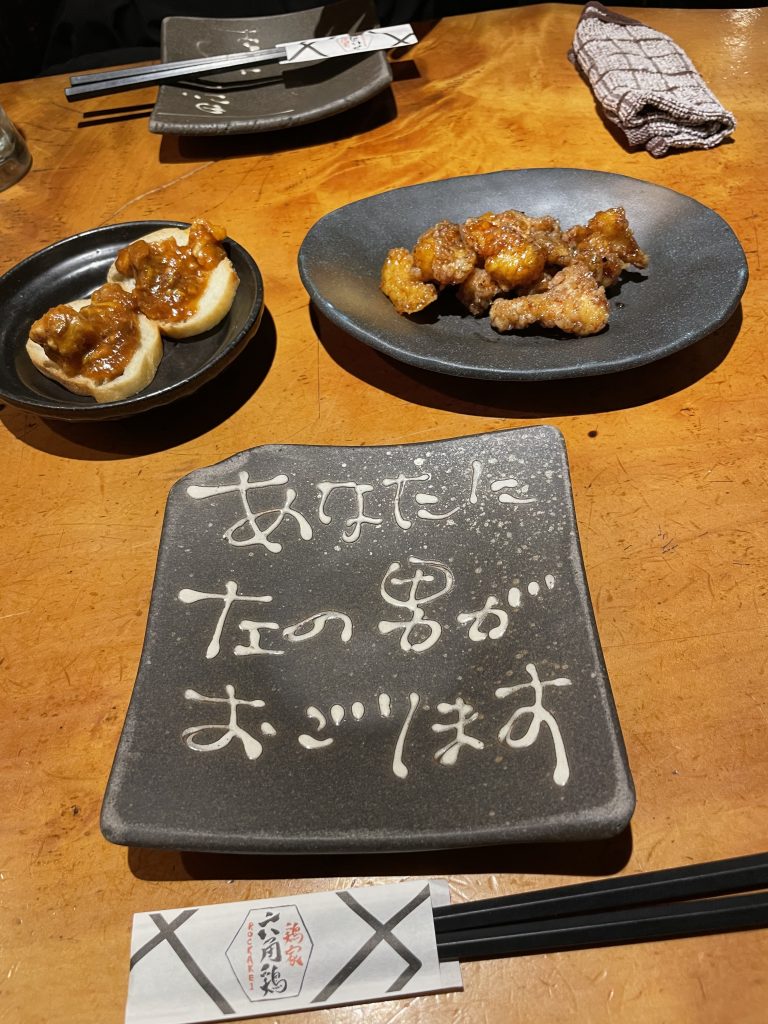 あなたに
左の男が
おごります
鶏家
六角鶏
ROCKAKEI